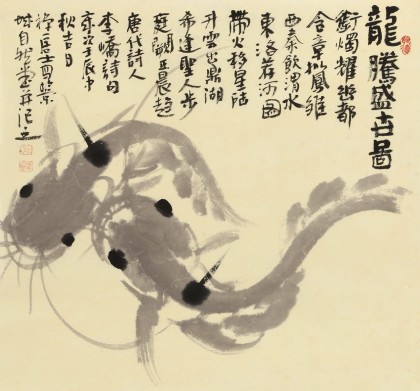 龍騰盛世圖
銜燭耀幽都
含章拟鳳雛
西秦飲渭水
東洛荐河圖
帶火移星陸
升雲出鼎湖
希逢聖人步
庭闕正晨趨
唐代詩人
李嶠詩句
歲次壬辰中
秋吉日